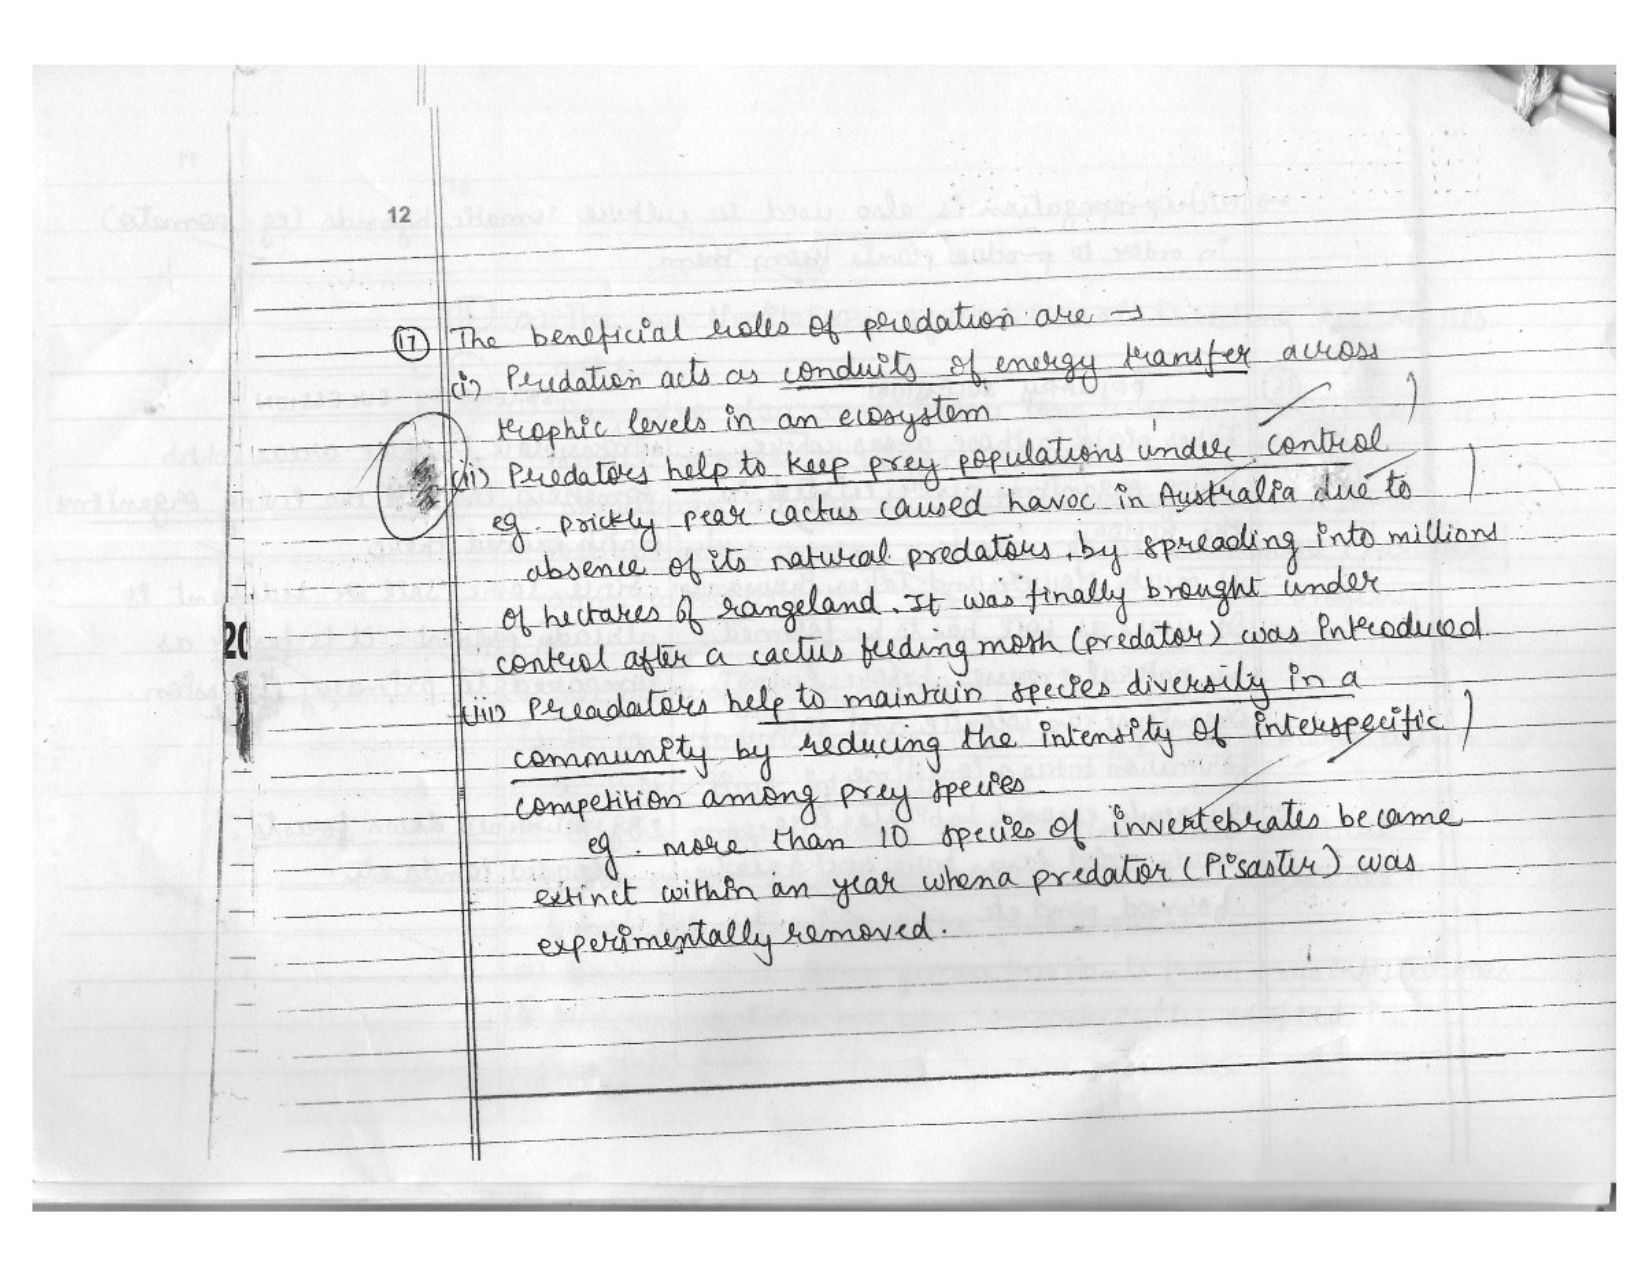 12
17 The beneficial roles of predation are →
(i) Predation acts as conduits of energy transfer across
trophic levels in an ecosystem
(ii) Predators help to keep prey populations under control
eg. prickly pear cactus caused havoc in Australia due to
absence of its natural predators, by spreading into millions
of hectares of rangeland. It was finally brought under
control after a cactus feeding moth (predator) was introduced.
(iii) Preadators help to maintain species diversity in a
community by reducing the intensity of interspecific
competition among prey species.
eg. more than 10 species of invertebrates became
extinct within an year when a predator (Pisaster) was
experimentally removed.
20